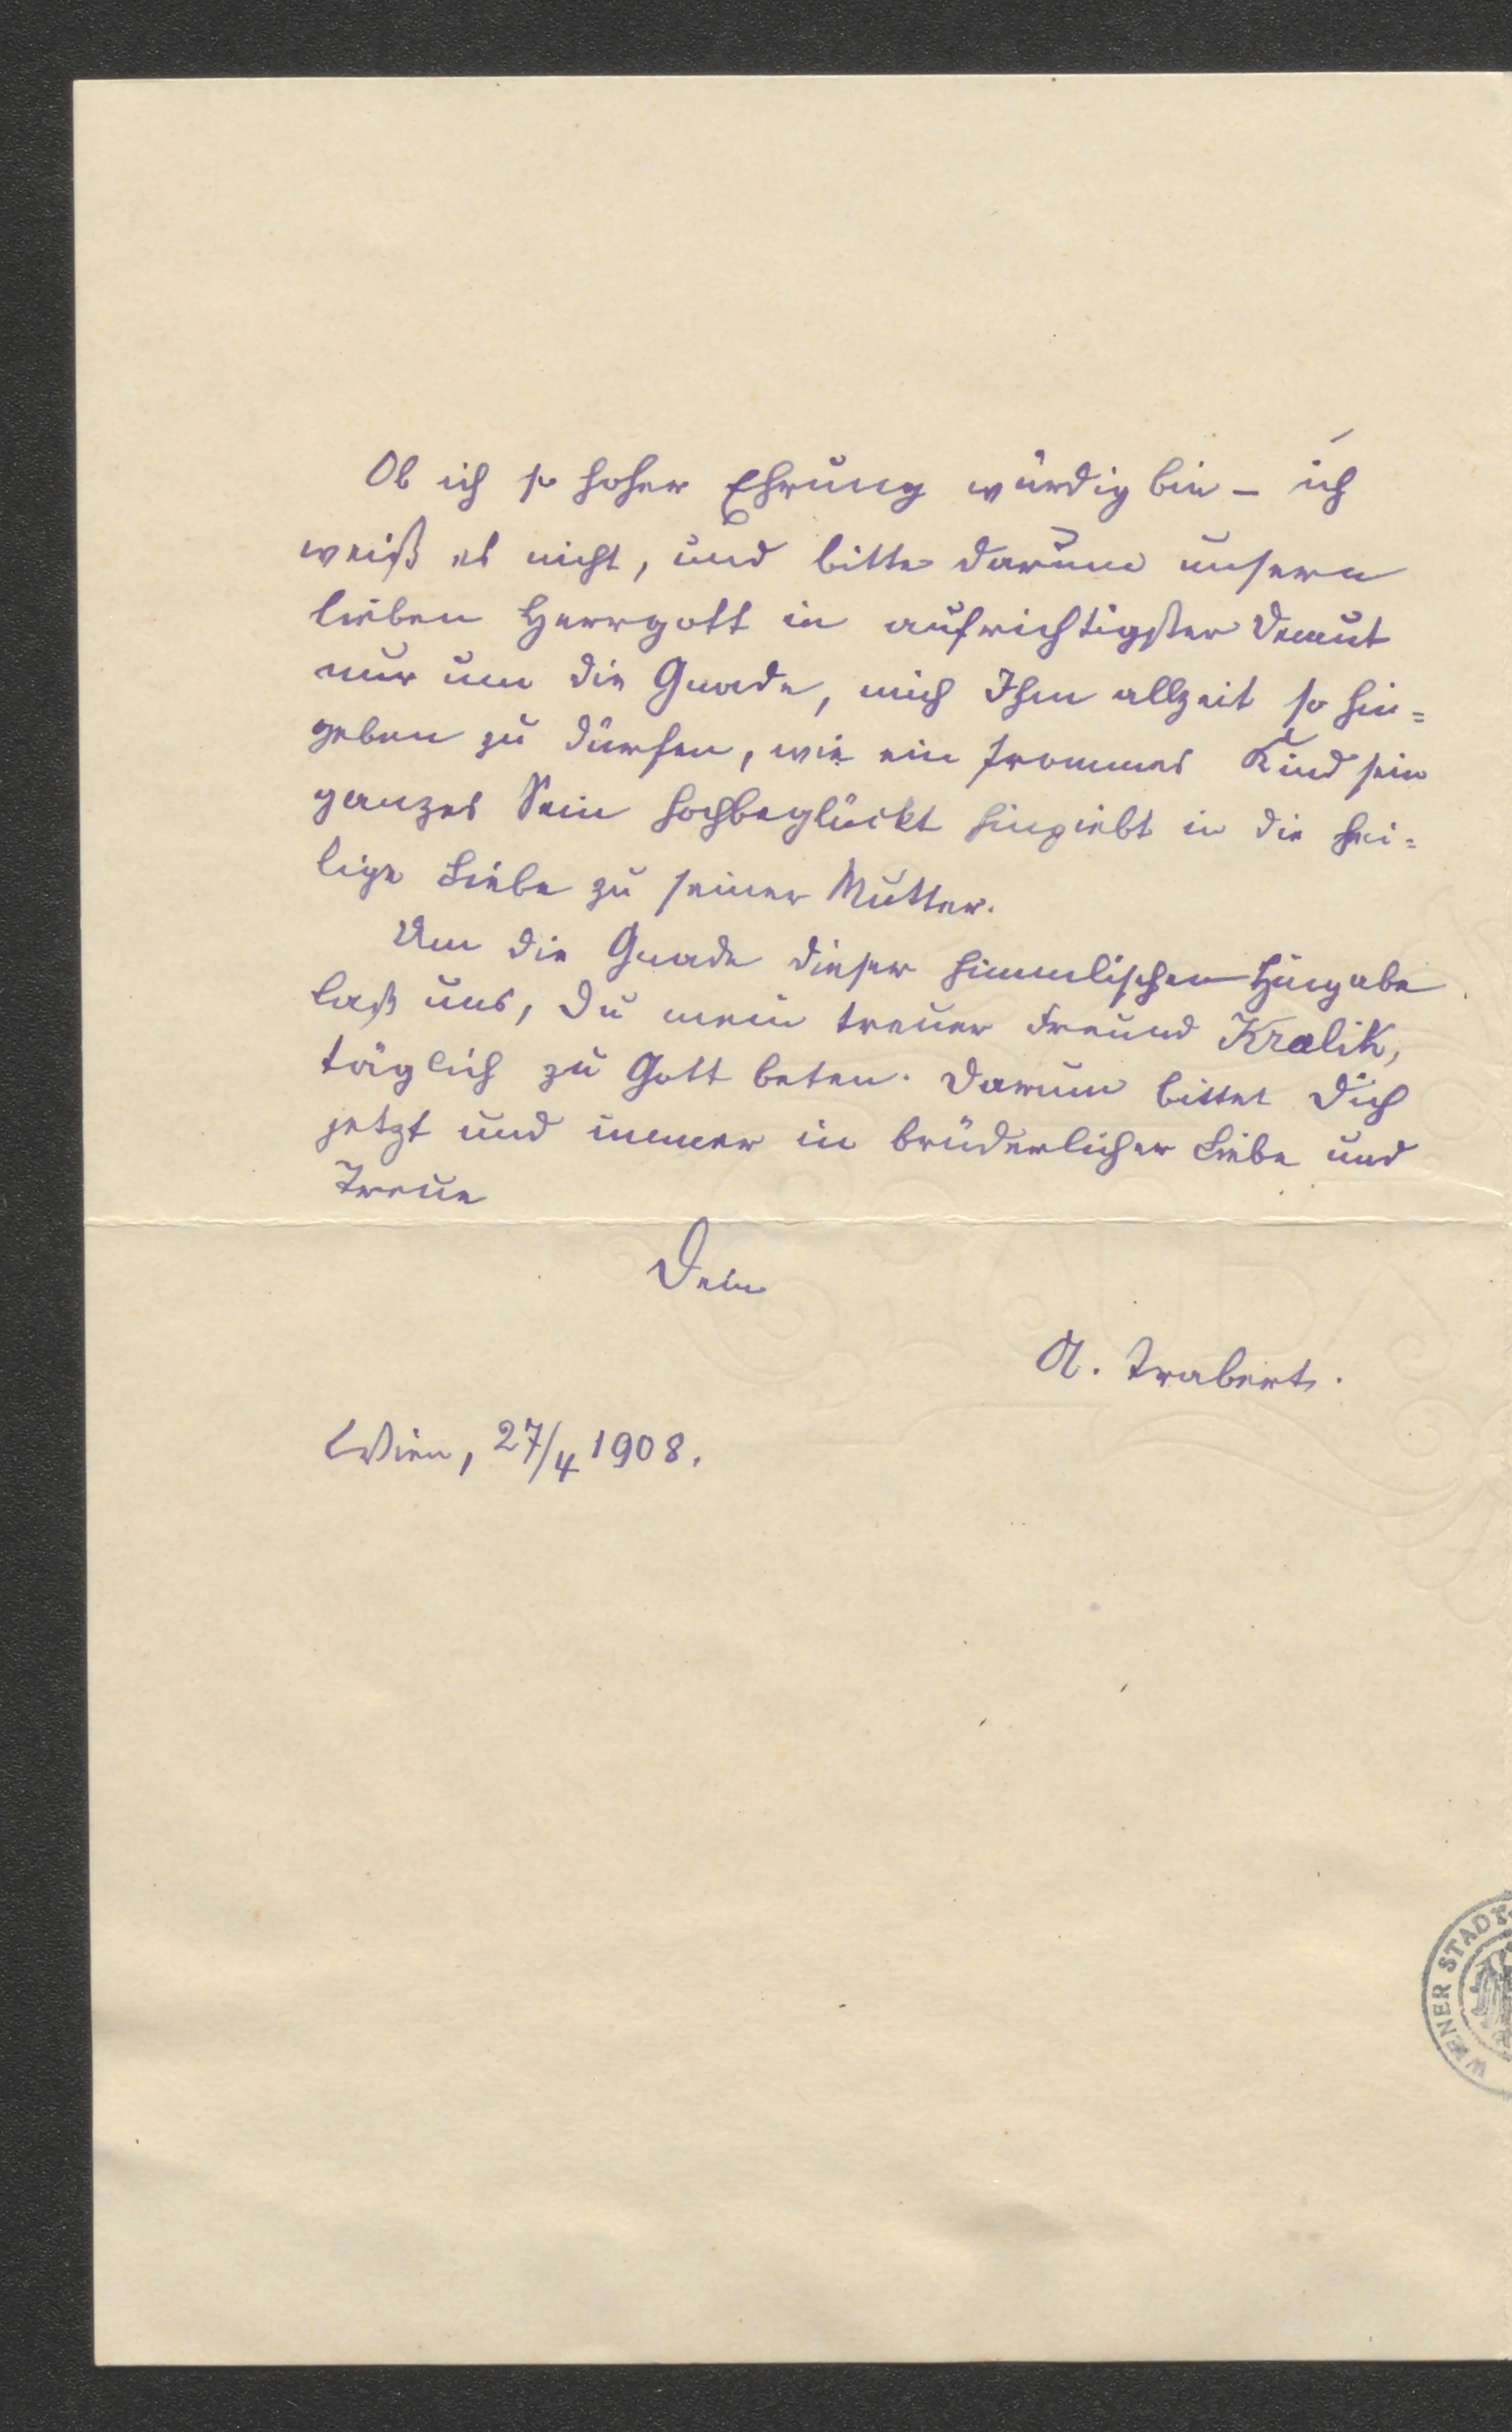 Ob ich so hoher Ehrung würdig bin – ich
weiß es nicht, und bitte darum unsern
lieben Herrgott in aufrichtigster Demut
nur um die Gnade, mich Ihm allzeit so hin=
geben zu dürfen, wie ein frommes Kind sein
ganzes Sein hochbeglückt hingiebt in die hei=
lige Liebe zu seiner Mutter.
Um die Gnade dieser himmlischen Hingabe
laß uns, Du mein treuer Freund Kralik,
täglich zu Gott beten. Darum bittet Dich
jetzt und immer in brüderlicher Liebe und
Treue
Dein
A. Trabert.
Wien, 27/4 1908.
WIENER STADT